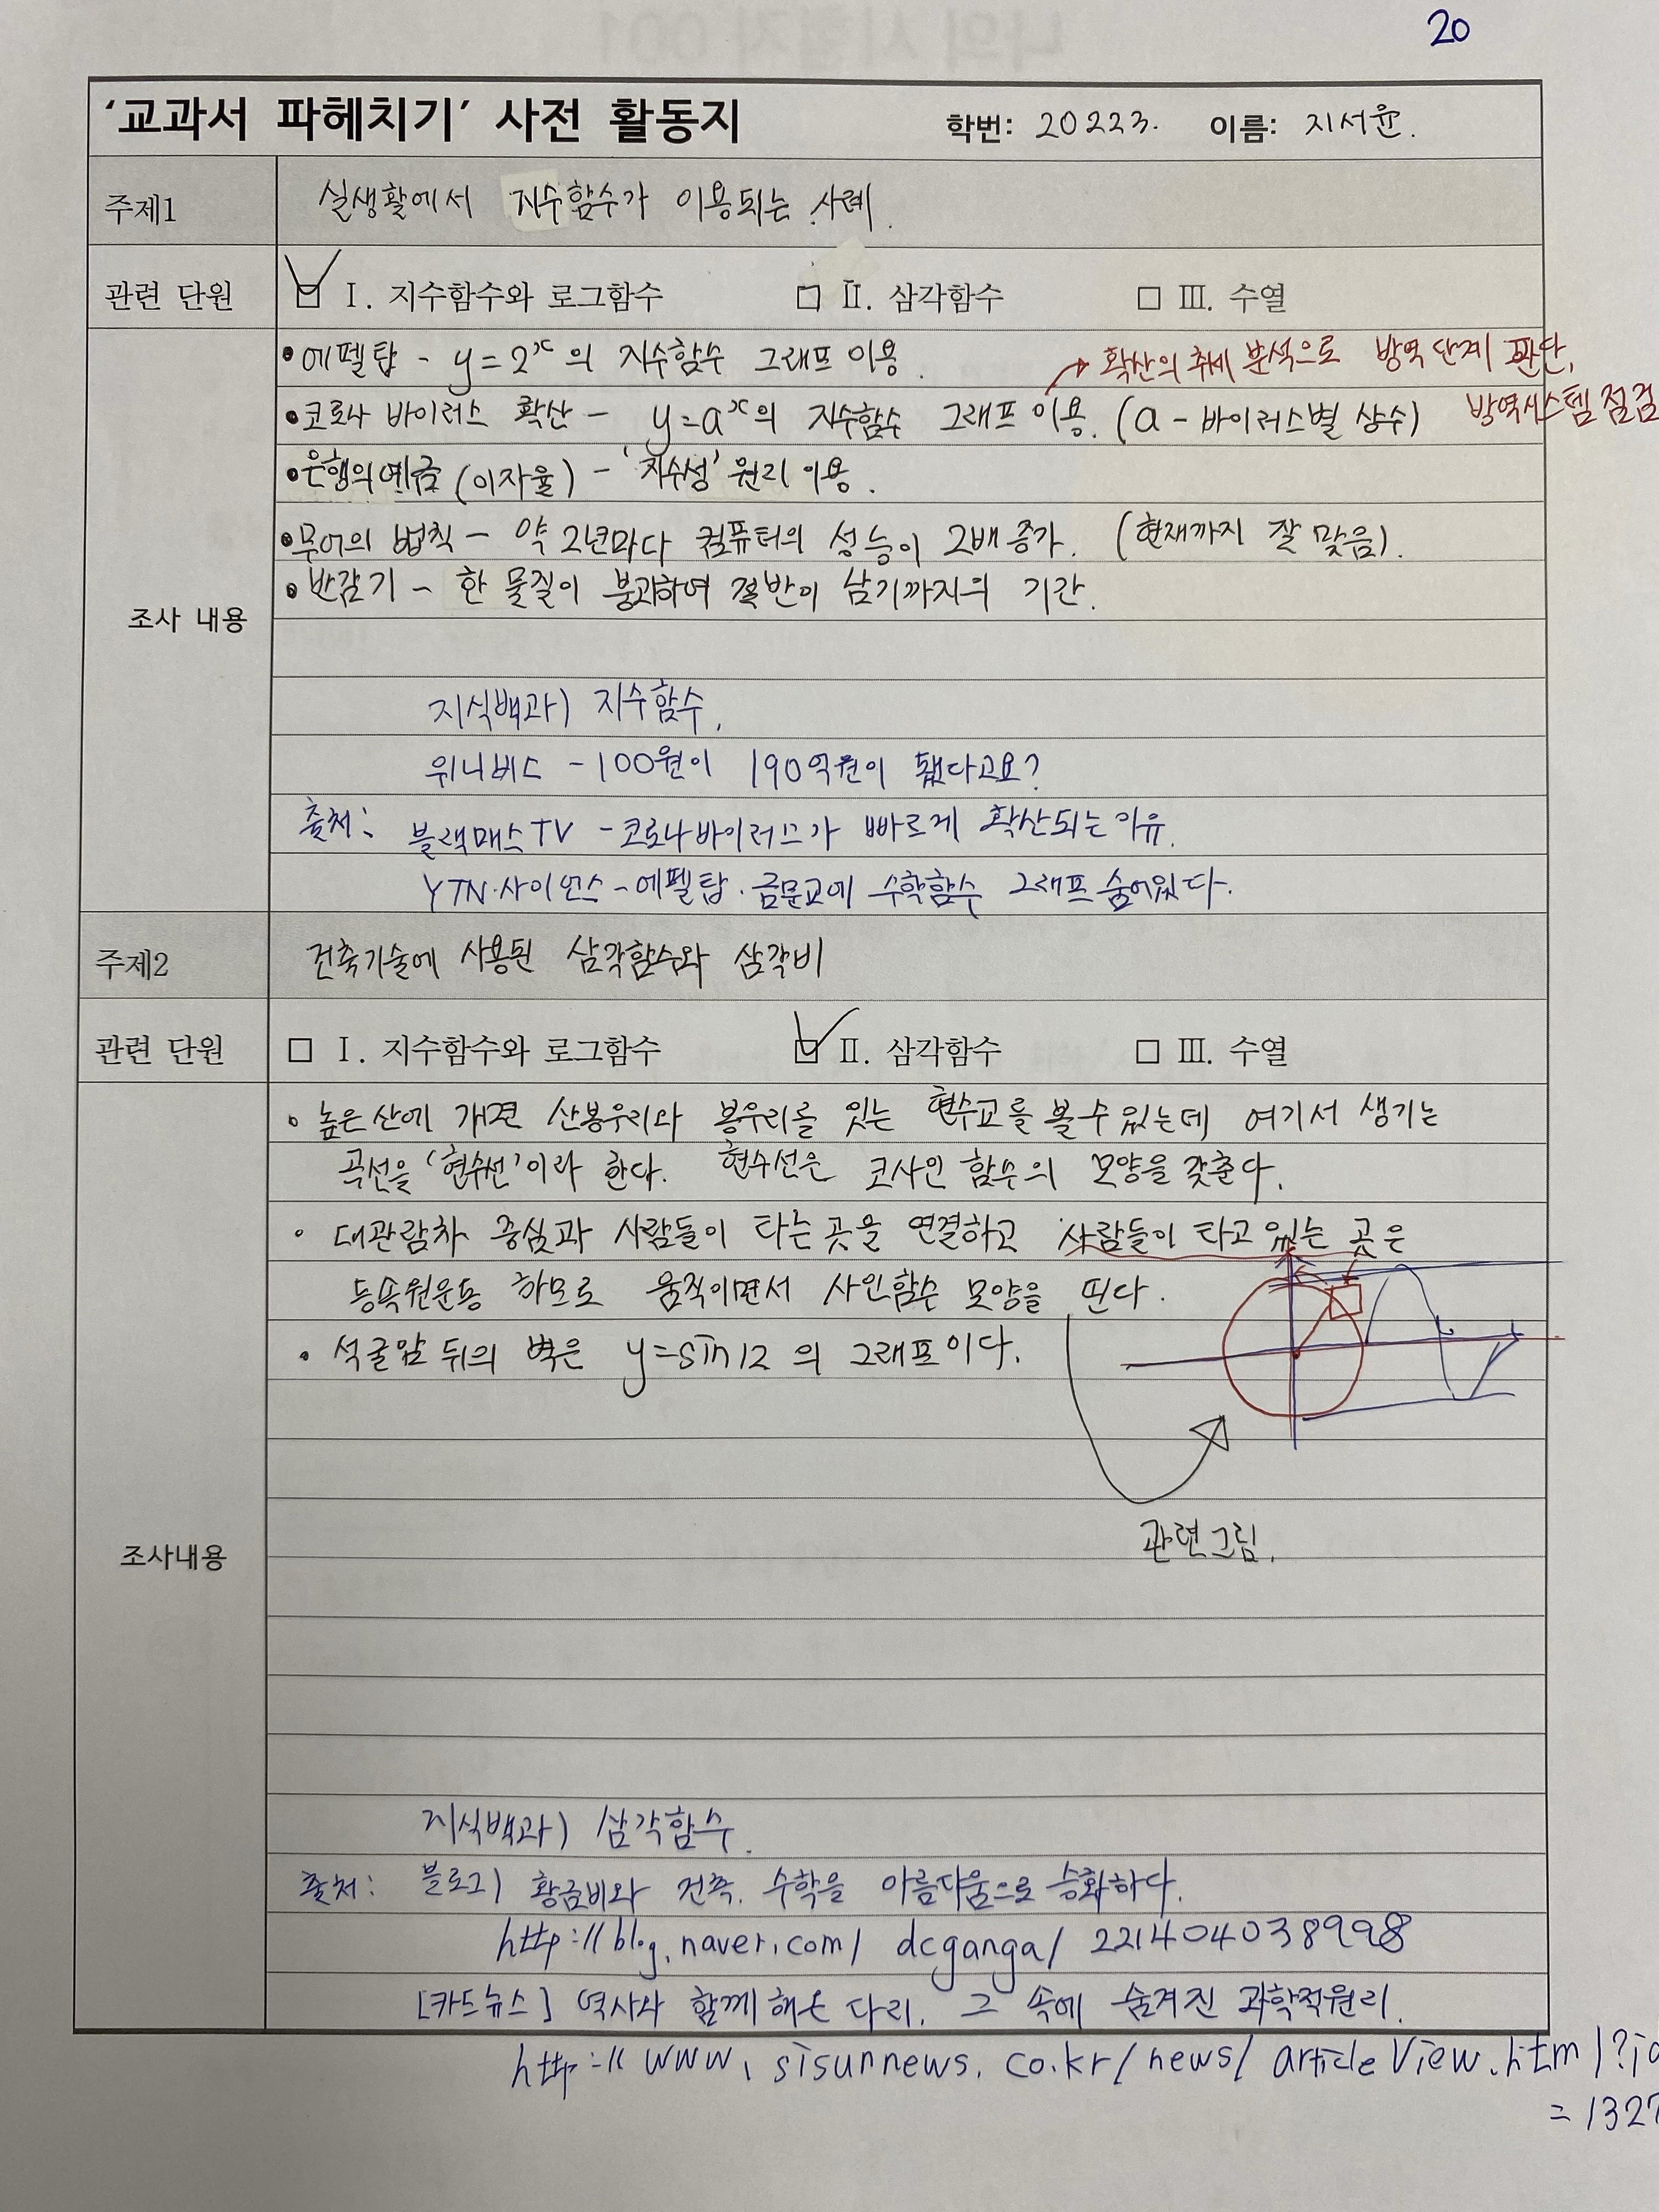 20
'교과서 파헤치기' 사전 활동지 학번: 20223. 이름: 지서윤.
주제1 실생활에서 지수함수가 이용되는 사례.
관련 단원 Ⅰ. 지수함수와 로그함수 Ⅱ. 삼각함수 Ⅲ. 수열
• 에펠탑 - y=2ˣ의 지수함수 그래프 이용.
→ 확산의 추세 분석으로 방역 단계 판단,
방역시스템 점검
• 코로나 바이러스 확산 - y=aˣ의 지수함수 그래프 이용. (a - 바이러스별 상수)
• 은행의 예금 (이자율) - '지수성' 원리 이용.
• 무어의 법칙 - 약 2년마다 컴퓨터의 성능이 2배 증가. (현재까지 잘 맞음).
• 반감기 - 한 물질이 붕괴하여 절반이 남기까지의 기간.
조사 내용
지식백과) 지수함수.
위니버스 - 100원이 190억원이 됐다고요?
출처: 블랙매스TV - 코로나바이러스가 빠르게 확산되는 이유.
YTN·사이언스 - 에펠탑·금문교에 수학함수 그래프 숨어있다.
주제2 건축기술에 사용된 삼각함수와 삼각비
관련 단원 Ⅰ. 지수함수와 로그함수 Ⅱ. 삼각함수 Ⅲ. 수열
• 높은 산에 가면 산봉우리와 봉우리를 잇는 현수교를 볼 수 있는데 여기서 생기는
곡선을 '현수선'이라 한다. 현수선은 코사인 함수의 모양을 갖춘다.
• 대관람차 중심과 사람들이 타는 곳을 연결하고 사람들이 타고 있는 곳은
등속원운동 하므로 움직이면서 사인함수 모양을 띤다.
• 석굴암 뒤의 벽은 y=sin12의 그래프이다.
관련그림.
조사내용
지식백과) 삼각함수.
출처: 블로그) 황금비와 건축. 수학을 아름다움으로 승화하다.
http://blog.naver.com/dcganga/221404038998
[카드뉴스] 역사와 함께 해온 다리. 그 속에 숨겨진 과학적원리.
http://www.sisunnews.co.kr/news/articleView.html?id
= 1327